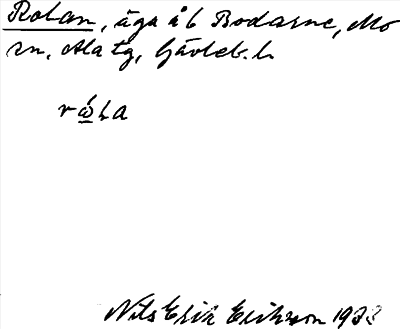 Rolan, äga å 6 Bodarne, Mo
sn, Ala tg, Gävleb. l.
Nils Erik Erikson 1933